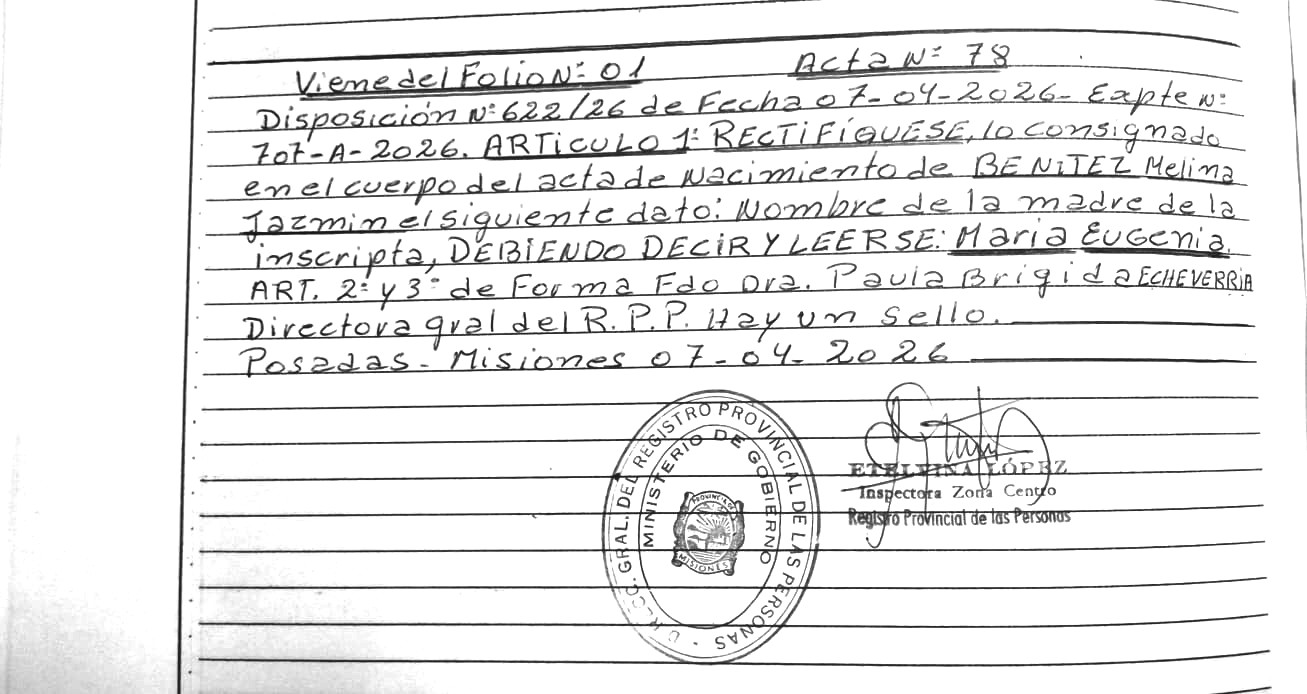 Viene del Folio Nº 01 Acta Nº 78
Disposición Nº 622/26 de Fecha 07-04-2026- Expte Nº
707-A-2026. ARTiCULO 1º RECTiFÍQUESE, lo consignado
en el cuerpo del acta de Nacimiento de BENiTEZ Melina
Jazmin el siguiente dato: Nombre de la madre de la
inscripta, DEBiENDO DECiR Y LEERSE: Maria EUGenia.
ART. 2º y 3º de Forma Fdo Dra. Paula Brigida ECHEVERRiA
Directora gral del R.P.P. Hay un sello.
Posadas - Misiones 07-04-2026
REGISTRO PROVINCIAL DE LAS PERSONAS
GRAL. DEL
MINISTERIO DE GOBIERNO
PROVINCIA DE
MISIONES
ETELVINA LÓPEZ
Inspectora Zona Centro
Registro Provincial de las Personas